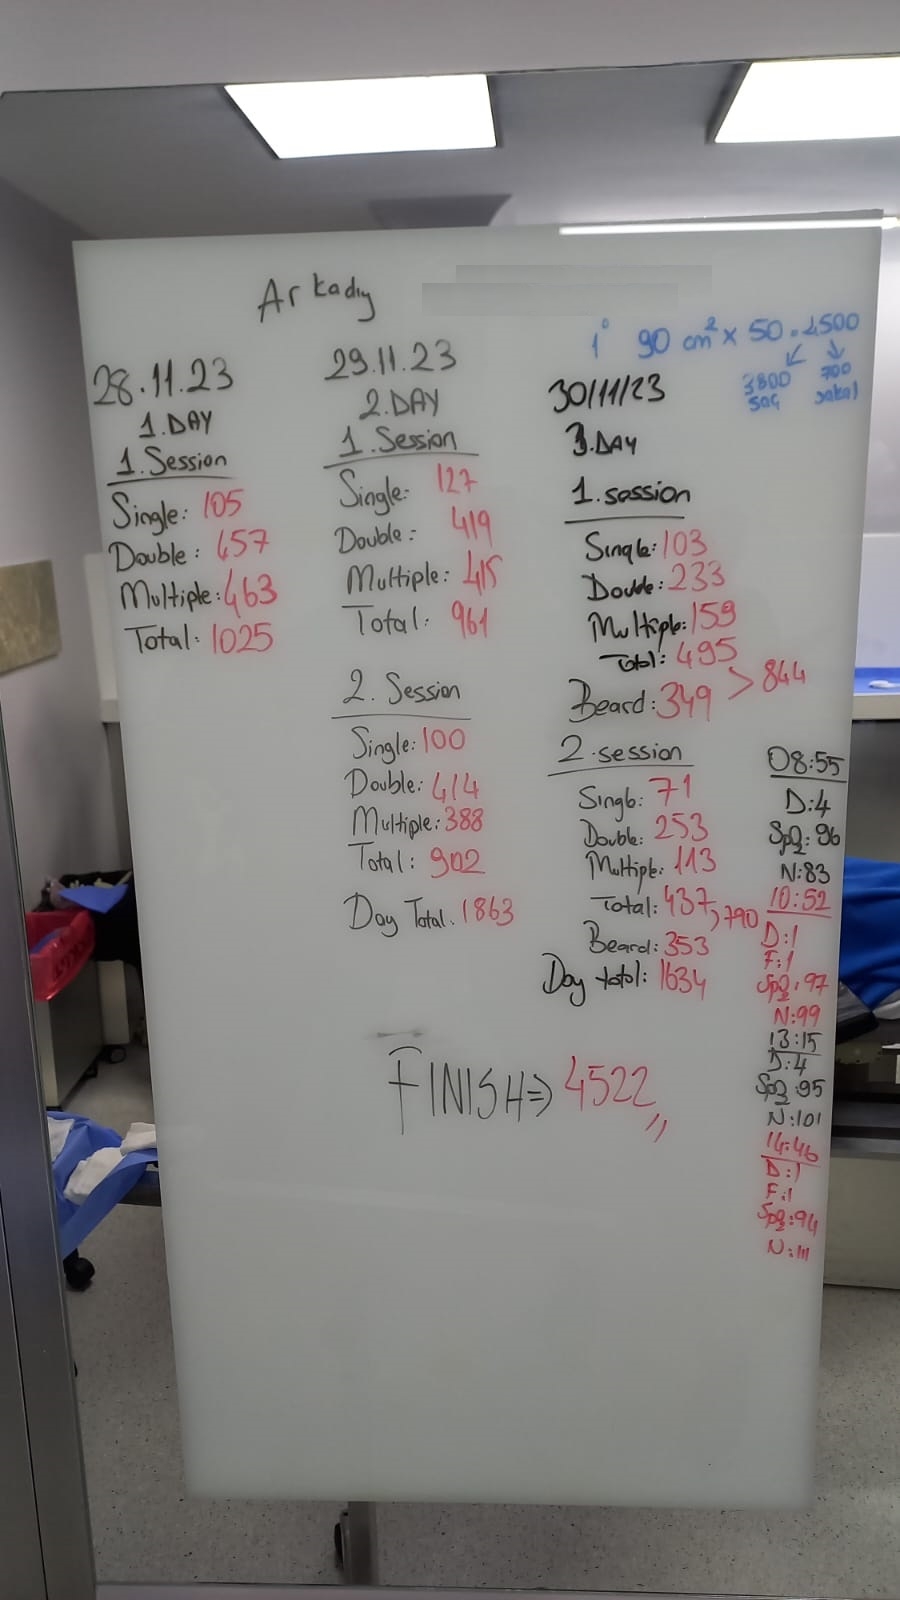 Arkadiy
1° 90 cm² x 50 = 4500
3800 saç
700 sakal
28.11.23
1.DAY
1.Session
Single: 105
Double: 457
Multiple: 463
Total: 1025
29.11.23
2.DAY
1.Session
Single: 127
Double: 419
Multiple: 415
Total: 961
2. Session
Single: 100
Double: 414
Multiple: 388
Total: 902
Day Total: 1863
30/11/23
3.DAY
1.session
Single: 103
Double: 233
Multiple: 159
Total: 495
Beard: 349 > 844
2.session
Single: 71
Double: 253
Multiple: 113
Total: 437, 790
Beard: 353
Day total: 1634
FINISH⇒ 4522,,
08:55
D:4
SpO2: 96
N:83
10:52
D:1
F:1
SpO2: 97
N:99
13:15
D:4
SpO2: 95
N:101
14:46
D:1
F:1
SpO2: 94
N:111